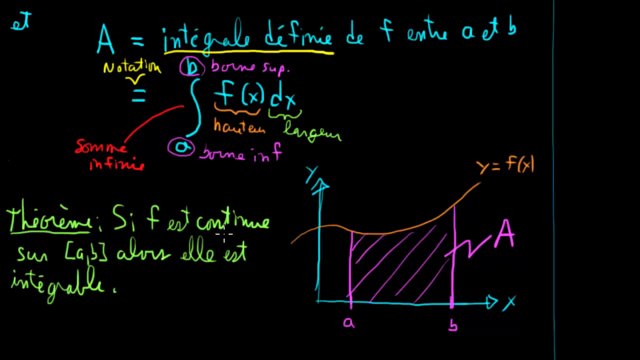 et
A = intégrale définie de f entre a et b
Notation
b borne sup.
= ∫ f(x) dx
hauteur largeur
somme infinie
a borne inf
Théorème: Si f est continue
sur [a,b] alors elle est
intégrable.
y
y = f(x)
A
x
a b